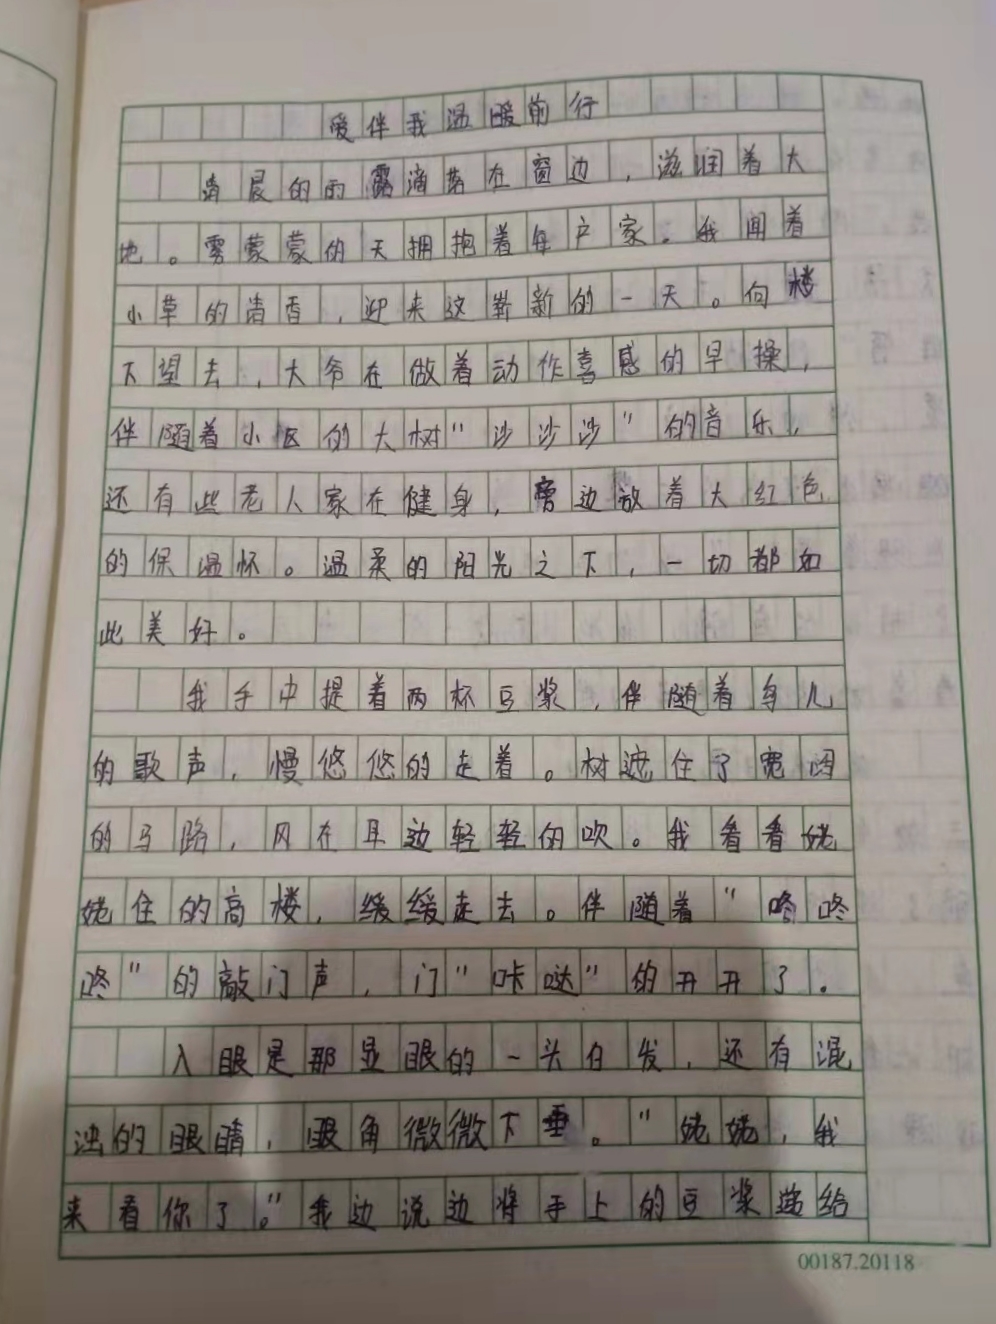 爱伴我温暖前行
清晨的雨露滴落在窗边，滋润着大
地。雾蒙蒙的天拥抱着每户家。我闻着
小草的清香，迎来这崭新的一天。向楼
下望去，大爷在做着动作喜感的早操，
伴随着小区的大树"沙沙沙"的音乐，
还有些老人家在健身，旁边放着大红色
的保温怀。温柔的阳光之下，一切都如
此美好。
我手中提着两杯豆浆，伴随着鸟儿
的歌声，慢悠悠的走着。树遮住了宽阔
的马路，风在耳边轻轻的吹。我看看姥
姥住的高楼，缓缓走去。伴随着"咚咚
咚"的敲门声，门"咔哒"的开开了。
入眼是那显眼的一头白发，还有混
浊的眼睛，眼角微微下垂。"姥姥，我
来看你了。"我边说边将手上的豆浆递给
00187.20118